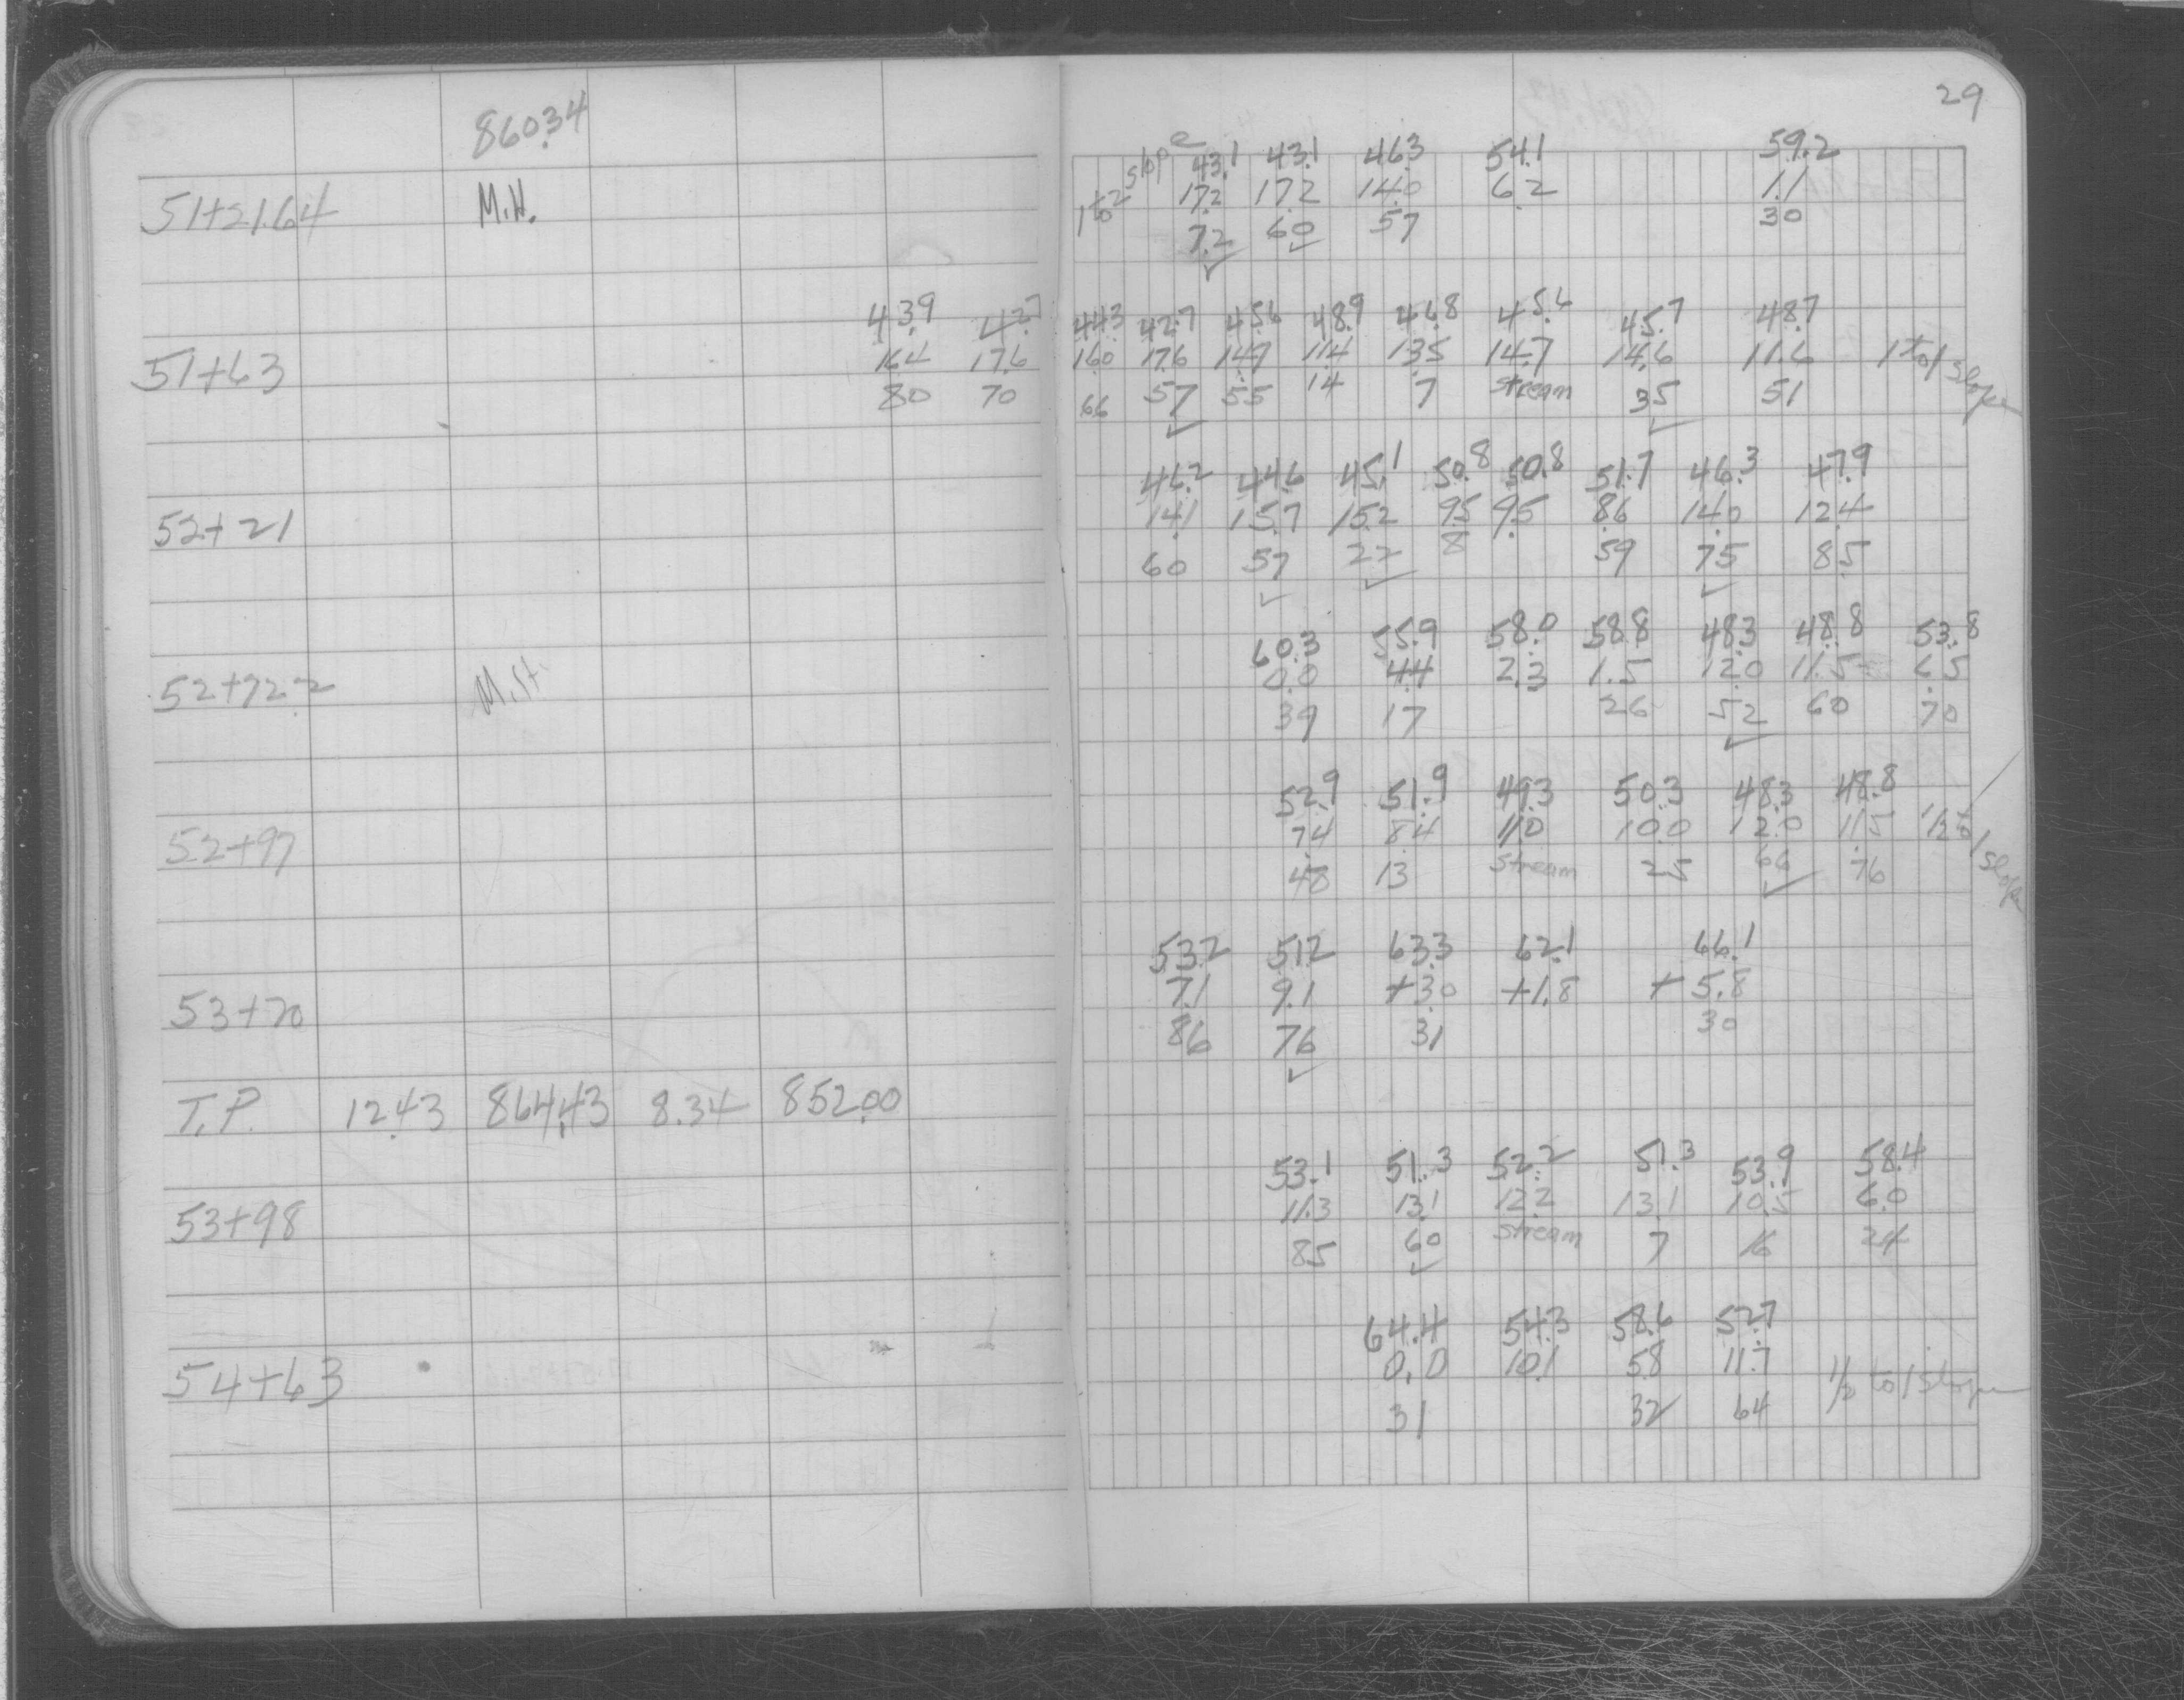 29
860.34
1 to 2 slope 43.1 43.1 46.3 54.1 59.2
51+21.64 M.H. 17.2 17.2 14.0 6.2 1.1
72 60 57 30
43.9 42.7 44.3 42.7 45.6 48.9 46.8 45.6 45.7 48.7
51+63 16.4 17.6 16.0 17.6 14.7 11.4 13.5 14.7 14.6 11.6 1 to 1 slope
80 70 66 57 55 14 7 stream 35 51
46.2 44.6 45.1 50.8 50.8 51.7 46.3 47.9
52+21 14.1 15.7 15.2 9.5 9.5 8.6 14.0 12.4
60 57 22 8 59 75 85
60.3 55.9 58.0 58.8 48.3 48.8 53.8
52+72.2 M.H. 0.0 4.4 2.3 1.5 12.0 11.5 6.5
39 17 26 52 60 70
52.9 51.9 49.3 50.3 48.3 48.8
52+97 7.4 8.4 11.0 10.0 12.0 11.5 1/2 to 1 slope
48 13 stream 25 66 76
53.2 51.2 63.3 62.1 66.1
53+70 7.1 9.1 +3.0 +1.8 +5.8
86 76 31 30
T.P. 12.43 864.43 8.34 852.00
53.1 51.3 52.2 51.3 53.9 58.4
53+98 11.3 13.1 12.2 13.1 10.5 6.0
85 60 stream 7 16 24
64.4 54.3 58.6 52.7
54+63 0.0 10.1 5.8 11.7 1/2 to 1 slope
31 32 64